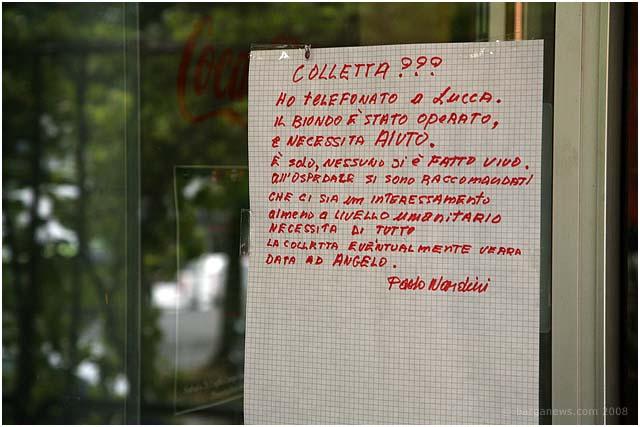 Coca
COLLETTA ???
HO TELEFONATO A LUCCA.
IL BIONDO È STATO OPERATO,
E NECESSITA AIUTO.
È SOLO, NESSUNO SI È FATTO VIVO.
ALL'OSPEDALE SI SONO RACCOMANDATI
CHE CI SIA UN INTERESSAMENTO
ALMENO A LIVELLO UMANITARIO
NECESSITA DI TUTTO
LA COLLETTA EVENTUALMENTE VERRA
DATA AD ANGELO.
Paolo Nardini
© barganews.com 2008